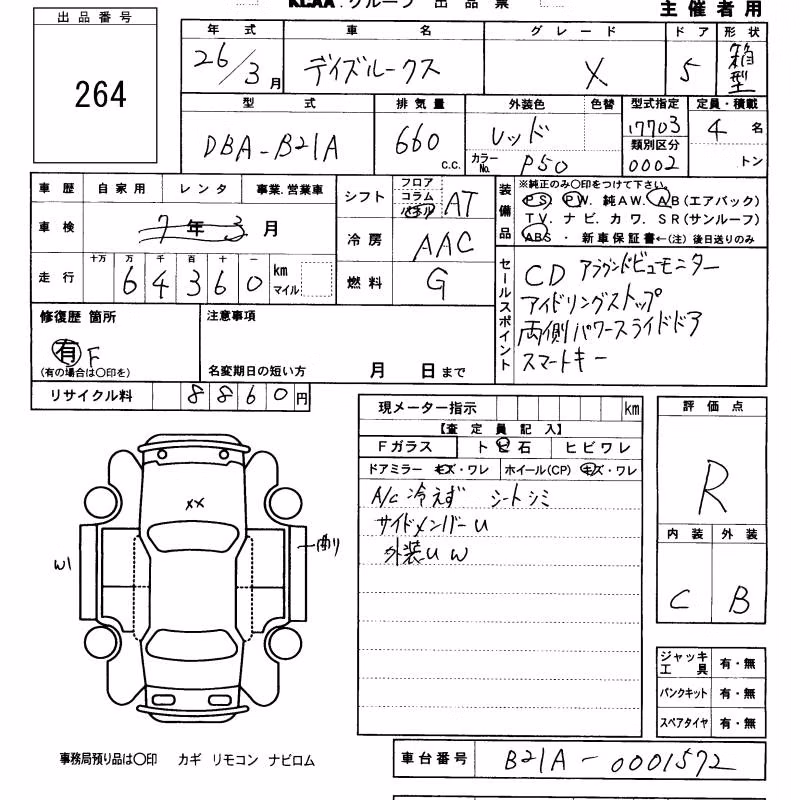 KCAA.グループ 出品票
主催者用
出品番号
264
年式 車名 グレード ドア 形状
26/3月 デイズルークス X 5 箱型
型式 排気量 外装色 色替 型式指定 定員・積載
DBA-B21A 660 c.c. レッド 17703 4名
類別区分
カラーNo. P50 0002 トン
車歴 自家用 レンタ 事業.営業車
車検 7年3月
走行 十万 万 千 百 十 一
64360 km マイル
シフト フロア コラム パネル AT
冷房 AAC
燃料 G
装備品 ※純正のみ○印をつけて下さい。
PS PW. 純AW. AB(エアバック)
TV. ナビ. カワ. SR(サンルーフ)
ABS ・ 新車保証書←(注) 後日送りのみ
セールスポイント
CD アラウンドビューモニター
アイドリングストップ
両側パワースライドドア
スマートキー
修復歴 箇所
有 F
(有の場合は○印を)
注意事項
名変期日の短い方 月 日まで
リサイクル料 8860円
現メーター指示 km
【査定員記入】
Fガラス ト ヒ 石 ヒビワレ
ドアミラー キズ・ワレ ホイール(CP) キズ・ワレ
A/C 冷えず シートシミ
サイドメンバーU
外装U W
評価点
R
内装 外装
C B
XX
W1
曲り
ジャッキ工具 有・無
パンクキット 有・無
スペアタイヤ 有・無
事務局預り品は○印 カギ リモコン ナビロム
車台番号 B21A-0001572